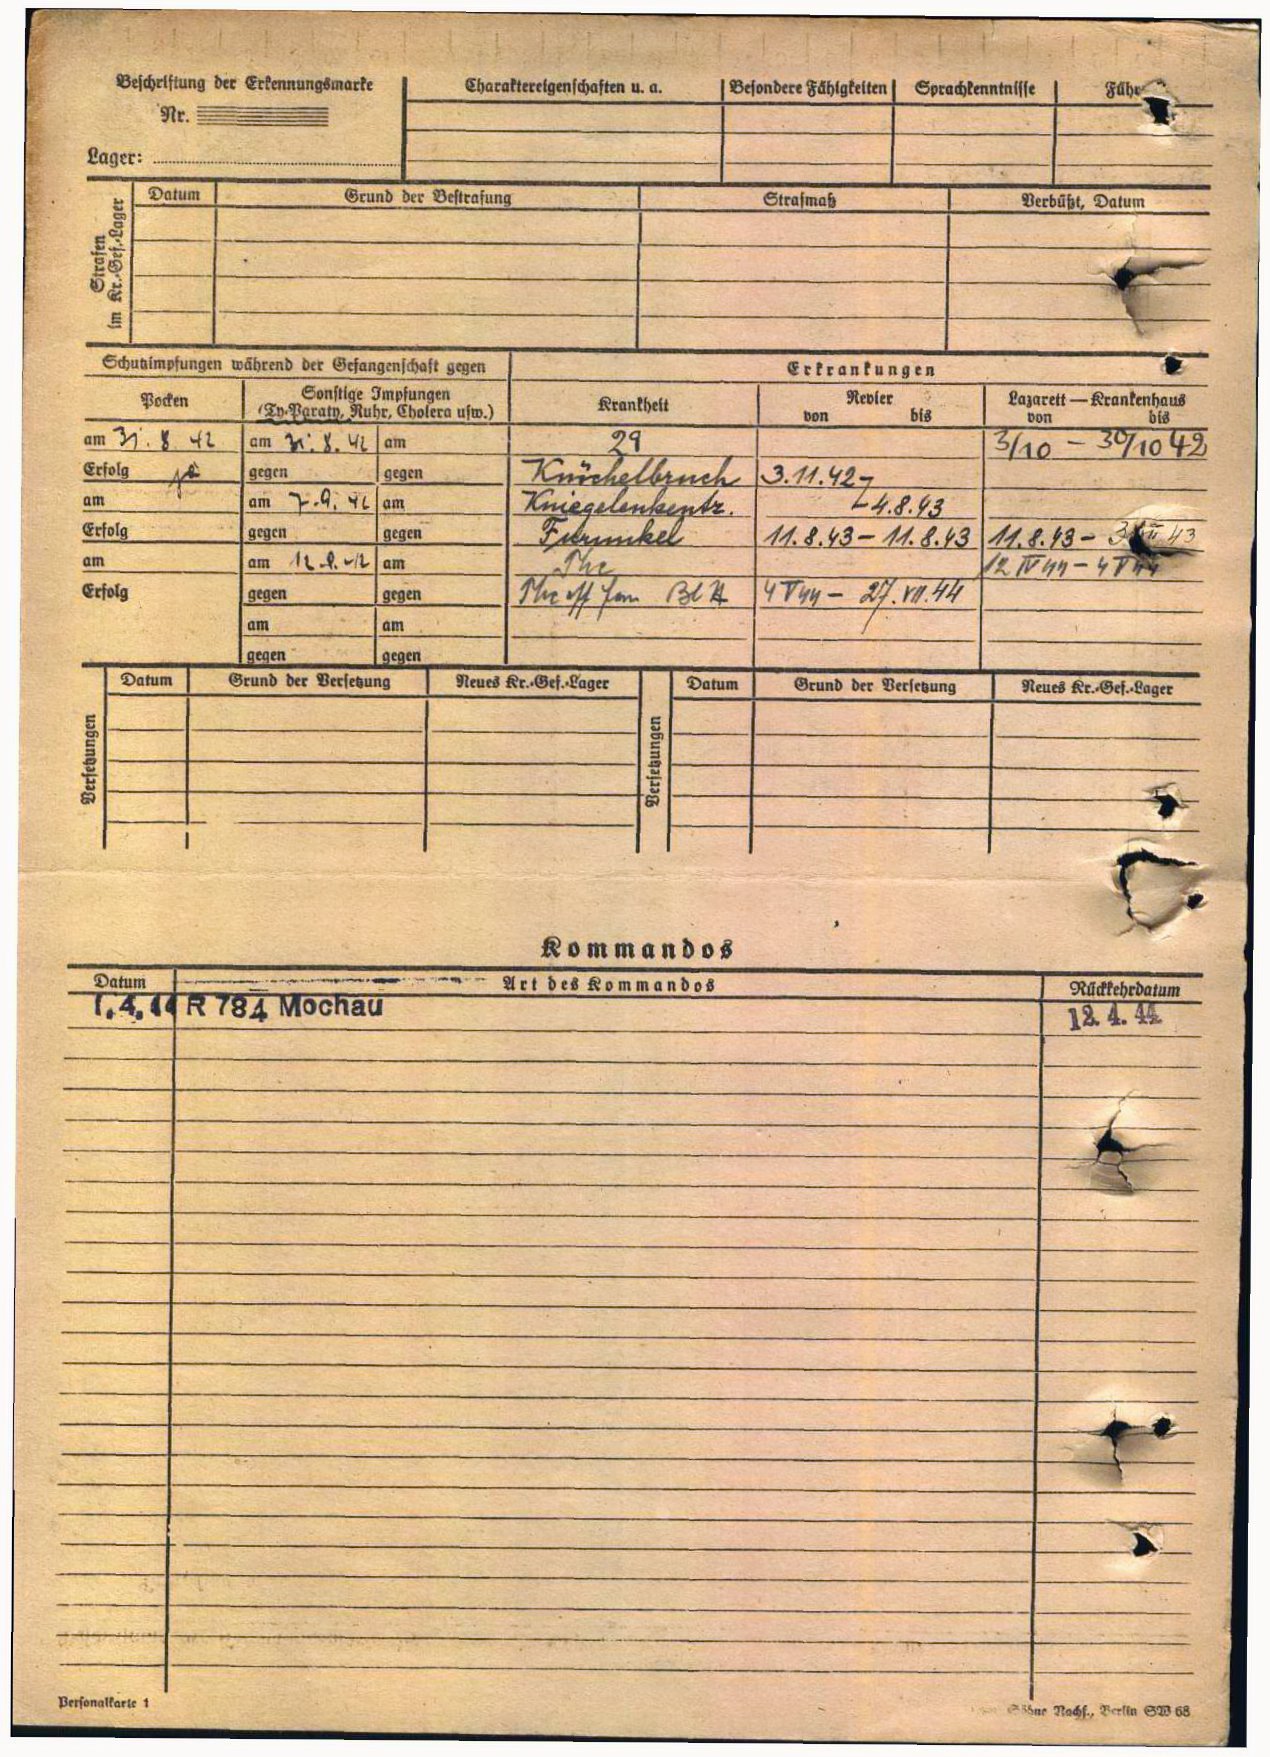 Beschriftung der Erkennungsmarke
Nr.
Lager:
Charaktereigenschaften u. a.
Besondere Fähigkeiten
Sprachkenntnisse
Strafen im Kr.-Gef.-Lager
Datum
Grund der Bestrafung
Strafmaß
Verbüßt, Datum
Schutzimpfungen während der Gefangenschaft gegen
Erkrankungen
Pocken
Sonstige Impfungen
(Ty-Paraty, Ruhr, Cholera usw.)
Krankheit
Revier
von bis
Lazarett — Krankenhaus
von bis
am 31. 8. 42 am 31. 8. 42 am 29 3/10 - 30/10 42
Erfolg ja gegen gegen Knöchelbruch 3.11.42-
am am 7. 9. 42 am Kniegelenkentz. - 4.8.43
Erfolg gegen gegen Furunkel 11.8.43 - 11.8.43 11.8.43 - 43
am am 12. 9. 42 am Tbc 12 IV 44 - 4 V 44
Erfolg gegen gegen Tbc off 4 V 44 - 27. VII. 44
am am
gegen gegen
Versetzungen
Datum
Grund der Versetzung
Neues Kr.-Gef.-Lager
Versetzungen
Datum
Grund der Versetzung
Neues Kr.-Gef.-Lager
Kommandos
Datum
Art des Kommandos
Rückkehrdatum
1. 4. 44 R 784 Mochau 12. 4. 44
Personalkarte 1
Söhne Nachf., Berlin SW 68